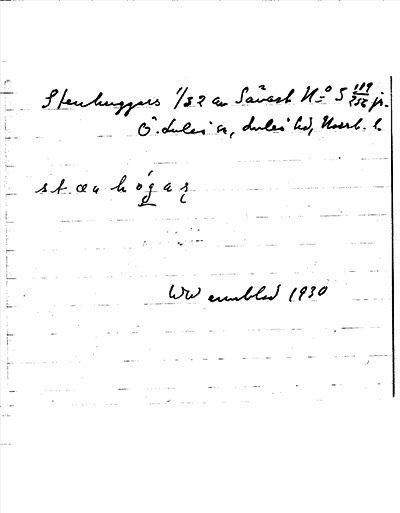 Stenhuggers 1/32 av Sävast No 5 119/256 jr.
Ö. Luleå sn, Luleå hd, Norrb. l.
stænhógaʂ
WW ennblad 1930